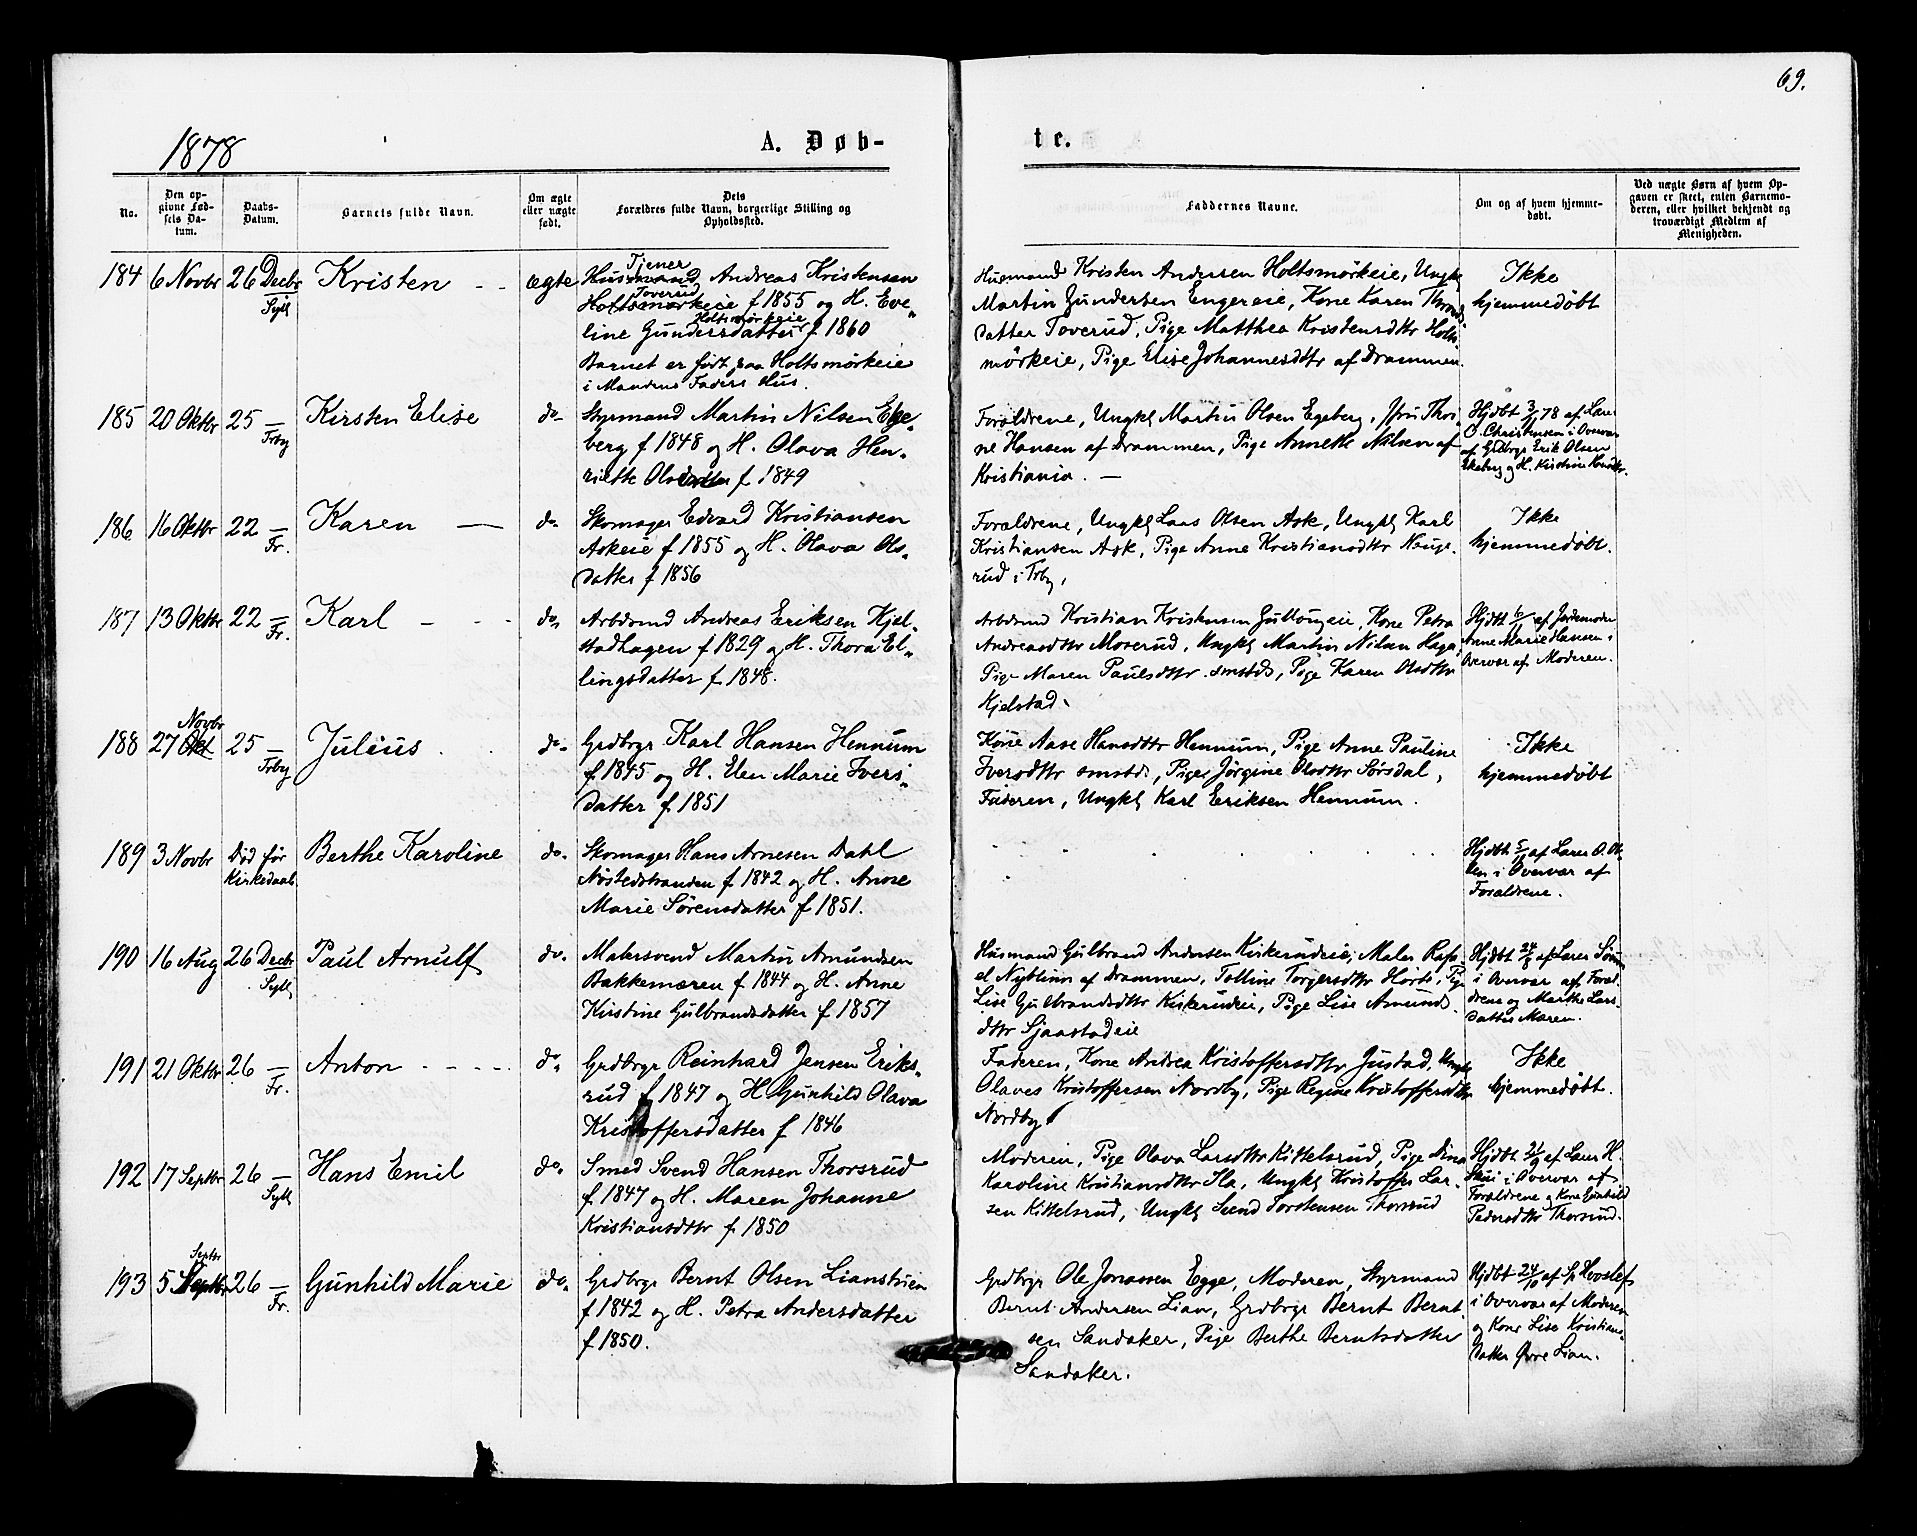 69.
1878
A. Døb-
te.
No.
Den op-
givne Fød-
sels Da-
tum.
Daabs-
Datum.
Barnets fulde Navn.
Om ægte
eller uægte
født.
Dets
Forældres fulde Navn, borgerlige Stilling og
Opholdssted.
Faddernes Navne.
Om og af hvem hjemme-
døbt.
Ved uægte Børn af hvem Op-
gaven er skeet, enten Barnemo-
deren, eller hvilket bekjendt og
troværdigt Medlem af
Menigheden.
184 6 Novbr 26 Decbr Kristen - - ægte
Syll
Tjener
Husmand Andreas Kristensen
Toverud
Holtsmørkeie f 1855 og H. Eve-
Holtsmørkeie
line Gundersdatter f 1860
Barnet er født paa Holtsmørkeie
i Mandens Faders Hus.
Husmand Kristen Andersen Holtsmørkeie, Ungkl
Martin Gundersen Engereie, Kone Karen
datter Toverud, Pige Matthea Kristensdttr Holts
mørkeie, Pige Elise Johannesdttr af Drammen.
Ikke
hjemmedøbt
185 20 Oktbr 25 — Kirsten Elise do-
Frby
Styrmand Martin Nilsen Ege-
berg f 1848 og H. Olava Hen-
riette Olsdatter f 1849
Forældrene, Ungkl Martin Olsen Egeberg, Fru Thri-
ne Hansen af Drammen, Pige Annette Nilsen af
Kristiania. —
Hjdbt 3/11 78 af Lærer
O. Christensen i Overvær
af Grdbrgr Erik Olsen
Ekeberg og H. Kirstine
186 16 Oktbr 22 — Karen — do-
Fr.
Skomager Edvard Kristiansen
Askeie f 1855 og H. Olava Ols-
datter f 1856
Forældrene, Ungkl Laas Olsen Ask, Ungkl Karl
Kristiansen Ask, Pige Anne Kristiansdttr Hauge-
rud i Frby,
Ikke
hjemmedøbt.
187 13 Oktbr 22 — Karl - - - do,
Fr.
Arbdsmd Andreas Eriksen Kjel-
stadhagen f 1829 og H. Thora El-
lingsdatter f 1848.
Arbdsmd Kristian Kristensen Gullougeie, Kone Petra
Andreasdttr Moserud, Ungkl Martin Nilsen Haga,
Pige Maren Paulsdttr smstds, Pige Karen Olsdttr
Kjelstad.
Hjdbt 6/11 af Jordemoder
Anne Marie Hansen i
Overvær af Moderen.
Novbr
188 27 Okt 25 — Julius do-
Frby
Grdbrgr Karl Hansen Hennum
f 1845 og H. Elen Marie Ivers-
datter f 1851
Kone Aase Hansdttr Hennum, Pige Anne Pauline
Iversdttr smstds, Pige Jørgine Olsdttr Sørsdal,
Faderen, Ungkl Karl Eriksen Hennum.
Ikke
hjemmedøbt
189 3 Novbr Død før Berthe Karoline do-
Kirkedaab
Skomager Hans Arnesen Dahl
Nøstedstranden f 1842 og H. Anne
Marie Sørensdatter f 1851.
Hjdbt 5/11 af Lærer O. Ol-
sen i Overvær af
Forældrene.
190 16 Aug 26 Decbr Paul Arnulf do-
Syll
Malersvend Martin Amundsen
Bakkemæren f 1844 og H. Anne
Kirstine Gulbrandsdatter f 1857
Husmand Gulbrand Andersen Kirkerudeie, Maler Rafa-
el Nyblinn af Drammen, Tolline Torgersdttr Horte, Pige
Lise Gulbrandsdttr Kirkerudeie, Pige Lise Amunds-
dttr Sjaastadeie
Hjdbt 24/8 af Lærer
i Overvær af Foræl-
drene og Marthe Lars-
datter Mæren.
191 21 Oktbr 26 — Anton - - - - do-
Fr.
Grdbrgr Reinhard Jensen Eriks-
rud f 1847 og H Gunhild Olava
Kristoffersdatter f 1846
Faderen, Kone Andrea Kristoffersdttr Justad, Ungkl
Olaves Kristoffersen Nordby, Pige Regine Kristoffersdttr
Nordby
Ikke
hjemmedøbt.
192 17 Septbr 26 — Hans Emil do-
Syll
Smed Svend Hansen Thorsrud
f 1847 og H. Maren Johanne
Kristiansdttr f 1850
Moderen, Pige Olava Larsdttr Kittelsrud, Pige Dina
Karoline Kristiansdttr Ila, Ungkl Kristoffer Lar-
sen Kittelsrud, Ungkl Svend Torstensen Thorsrud
Hjdbt af Lærer H.
Skui i Overvær af
Forældrene og Kone Gunhild
Pedersdttr Thorsrud.
Septbr
193 5 Septbr 26 — Gunhild Marie do.
Fr.
Grdbrgr Bernt Olsen Lianstuen
f 1842 og H. Petra Andersdatter
f 1850.
Grdbrgr Ole Jonassen Egge, Moderen, Styrmand
Bernt Andersen Lian, Grdbrgr Bernt Bernt-
sen Sandaker, Pige Berthe Berntsdatter
Sandaker.
Hjdbt 24/10 af Sp
i Overvær af Moderen
og Kone Lise Kristians-
datter Øvre Lian.